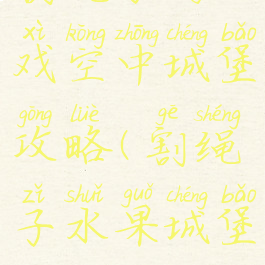 xì kōng zhōng chéng bǎo
戏空中城堡
gōng lüè gē shéng
攻略(割绳
zǐ shuǐ guǒ chéng bǎo
子水果城堡